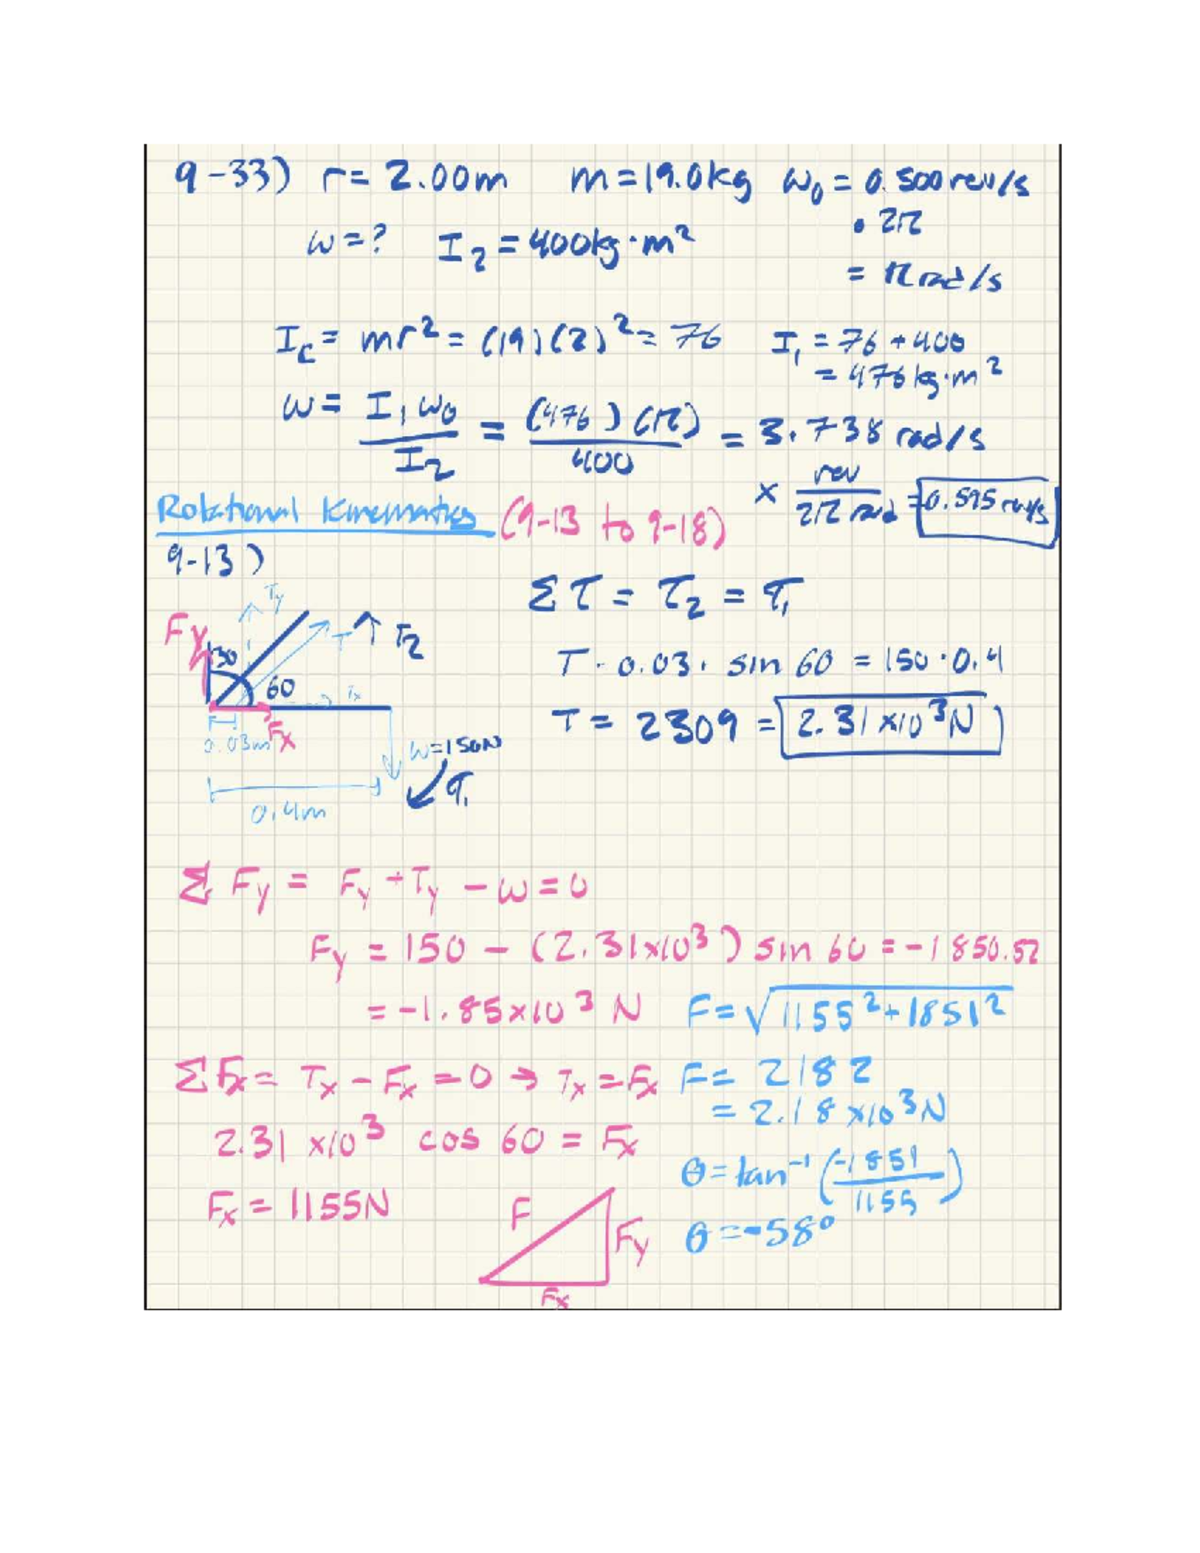 9-33) r = 2.00m m = 19.0kg ω₀ = 0.500 rev/s
• 2π
ω = ? I₂ = 400kg·m²
= π rad/s
I_c = mr² = (19)(2)² = 76 I₁ = 76 + 400
= 476 kg·m²
ω = I₁ω₀/I₂ = (476)(π)/400 = 3.738 rad/s
× rev/2π rad = 0.595 rev/s
Rotational Kinematics (9-13 to 9-18)
9-13)
Στ = τ₂ = τ₁
Ty
Fy
30
T
τ₂
60
Tx
T · 0.03 · sin 60 = 150 · 0.4
T = 2309 = 2.31 × 10³ N
0.03m
Fx
W = 150N
τ₁
0.4m
Σ Fy = Fy + Ty - W = 0
Fy = 150 - (2.31×10³) sin 60 = -1850.52
= -1.85×10³ N F = √1155² + 1851²
ΣFx = Tx - Fx = 0 → Tx = Fx F = 2182
= 2.18 ×10³ N
2.31 ×10³ cos 60 = Fx
θ = tan⁻¹ (-1851/1155)
Fx = 1155N
θ = -58°
F
Fy
Fx